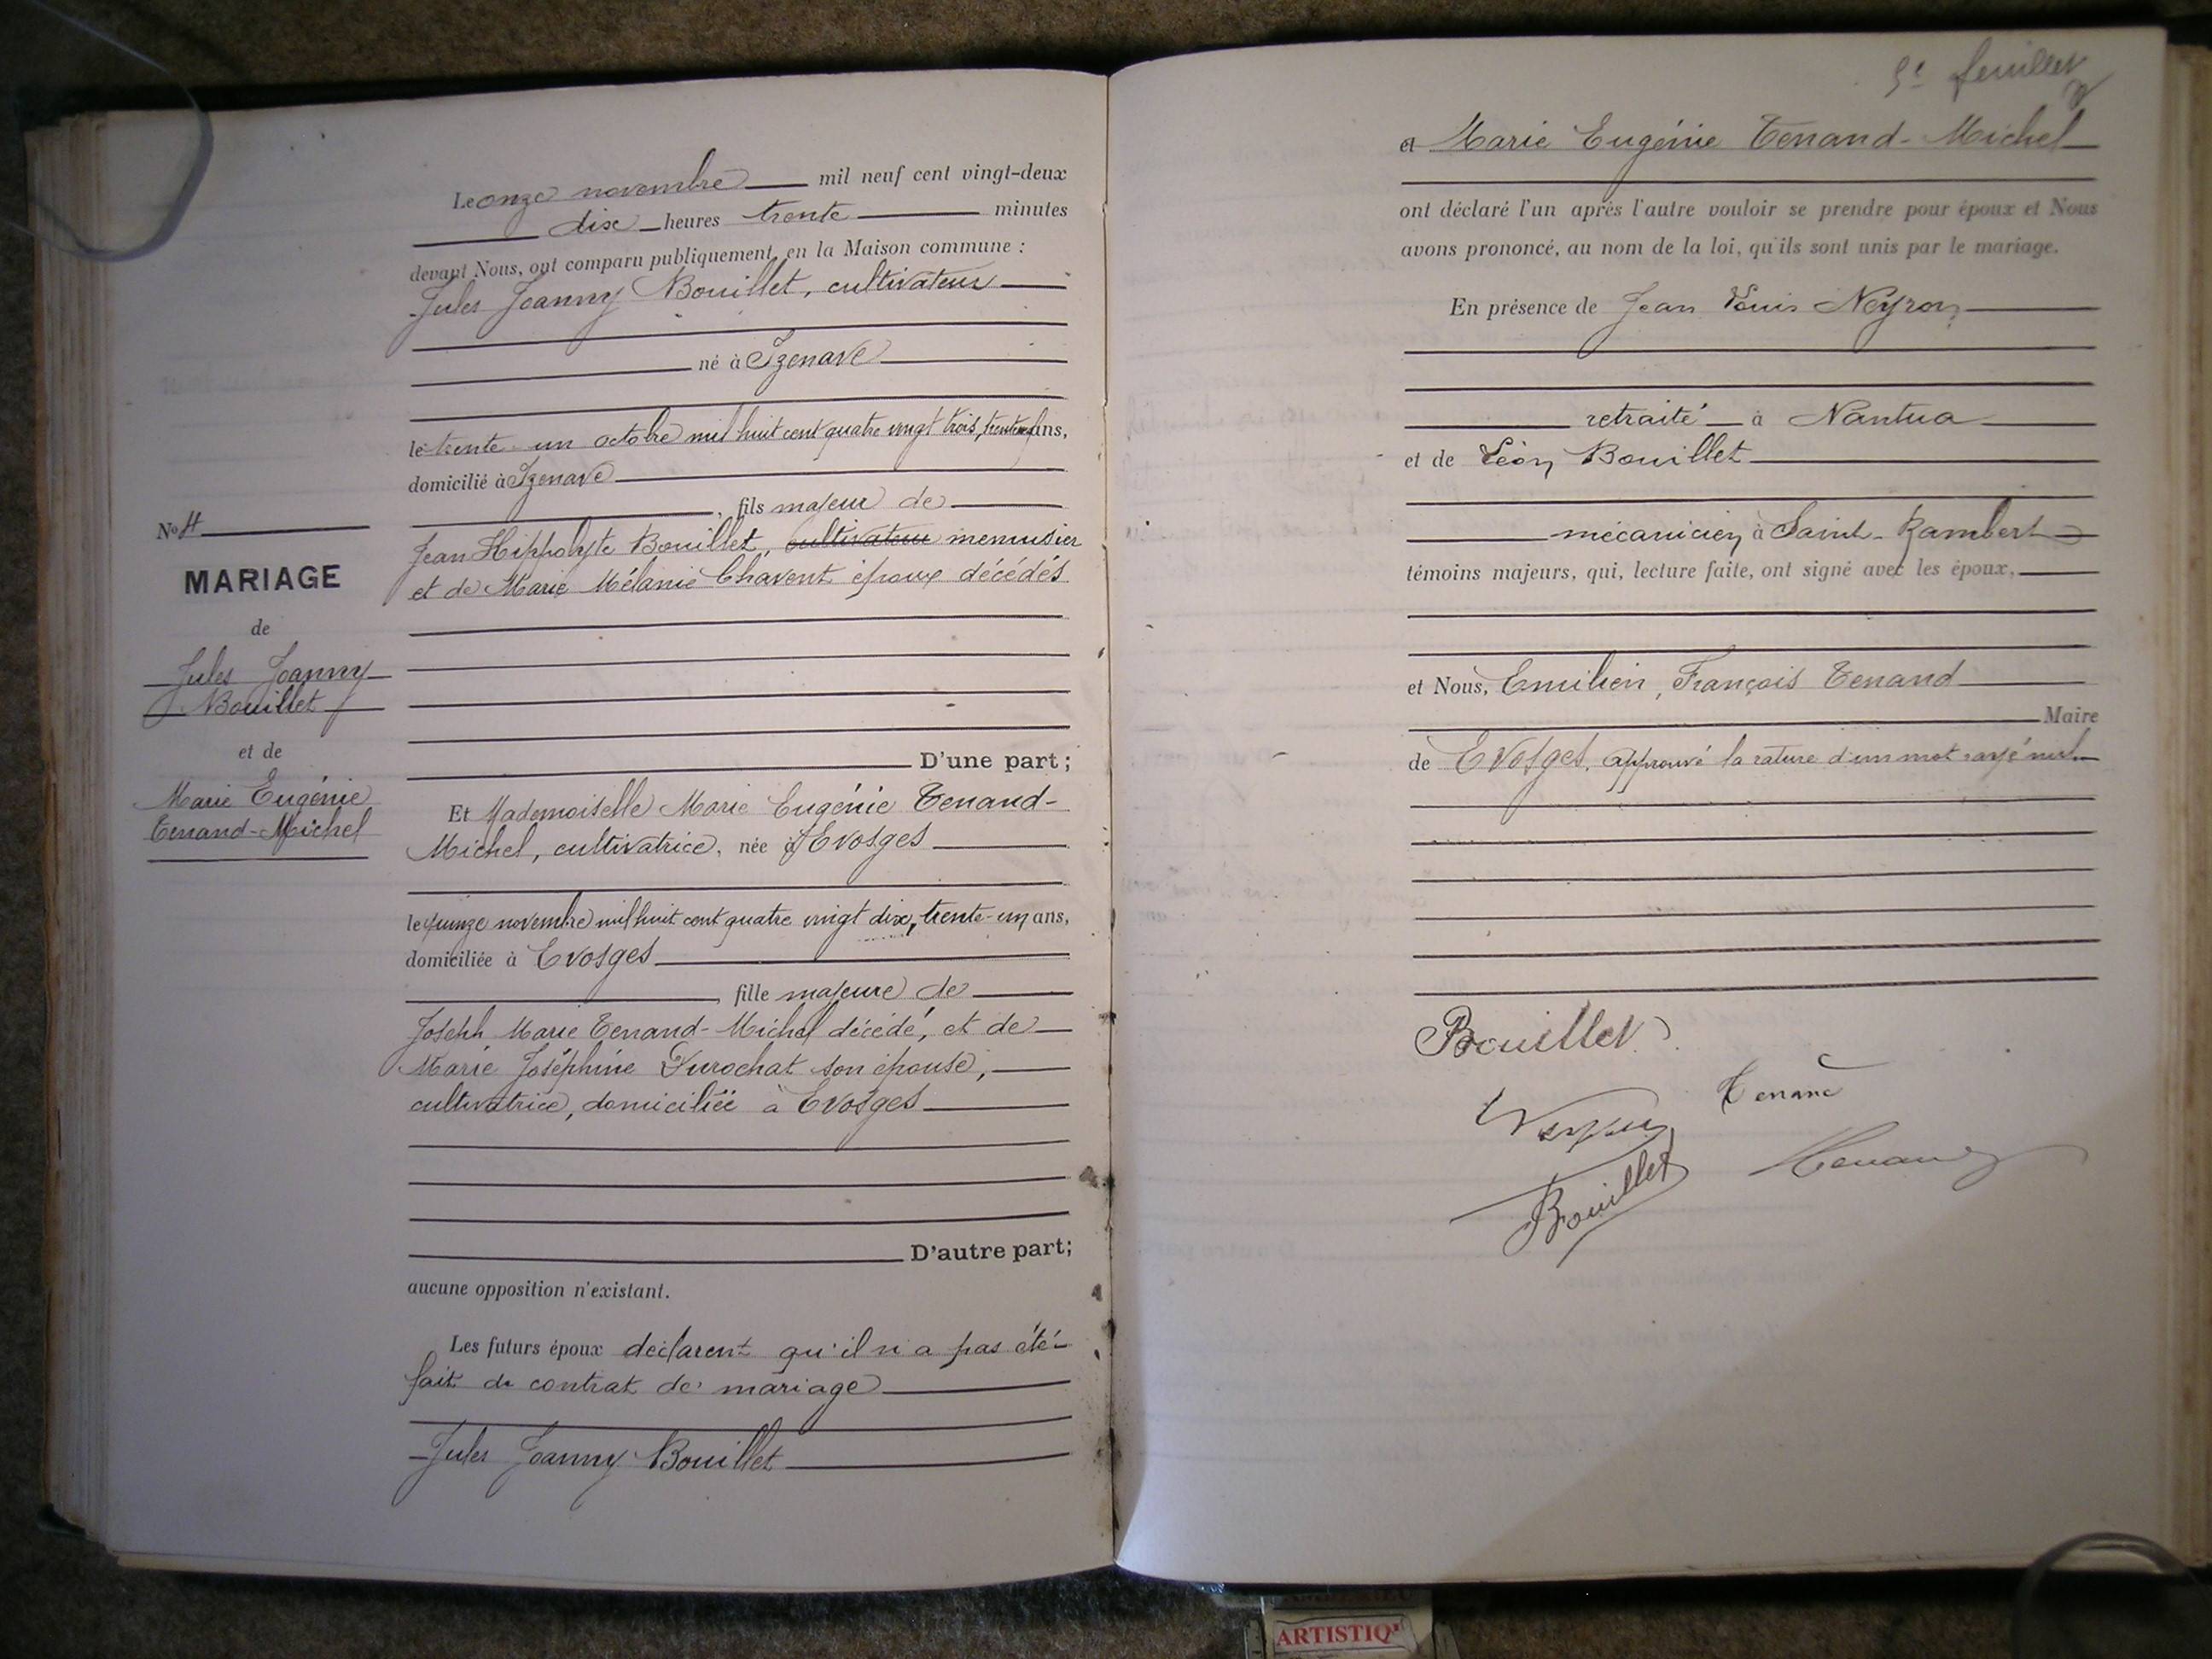 Le onze novembre mil neuf cent vingt-deux
dix heures trente minutes
devant Nous, ont comparu publiquement, en la Maison commune :
Jules Joanny Bouillet, cultivateur
né à Izenave
le trente un octobre mil huit cent quatre vingt trois, ans,
domicilié à Izenave
, fils majeur de
Jean Hippolyte Bouillet, cultivateur menuisier
et de Marie Mélanie Chavent époux décédés
D'une part ;
N° 4
MARIAGE
de
Jules Joanny
Bouillet
et de
Marie Eugénie
Tenand-Michel
Et Mademoiselle Marie Eugénie Tenand-
Michel, cultivatrice, née à Evosges
le quinze novembre mil huit cent quatre vingt dix, trente-un ans,
domiciliée à Evosges
, fille majeure de
Joseph Marie Tenand-Michel décédé, et de
Marie Joséphine Durochat son épouse,
cultivatrice, domiciliée à Evosges
D'autre part ;
aucune opposition n'existant.
Les futurs époux déclarent qu'il n'a pas été
fait de contrat de mariage
Jules Joanny Bouillet
5e feuillet
et Marie Eugénie Tenand-Michel
ont déclaré l'un après l'autre vouloir se prendre pour époux et Nous
avons prononcé, au nom de la loi, qu'ils sont unis par le mariage.
En présence de Jean Louis Neyron
retraité à Nantua
et de Léon Bouillet
mécanicien à Saint-Rambert
témoins majeurs, qui, lecture faite, ont signé avec les époux,
et Nous, Emilien, François Tenand
Maire
de Evosges. Approuvé la rature d'un mot rayé nul.
Bouillet
Tenand
Neyron
Tenand
Bouillet
ARTISTIQ